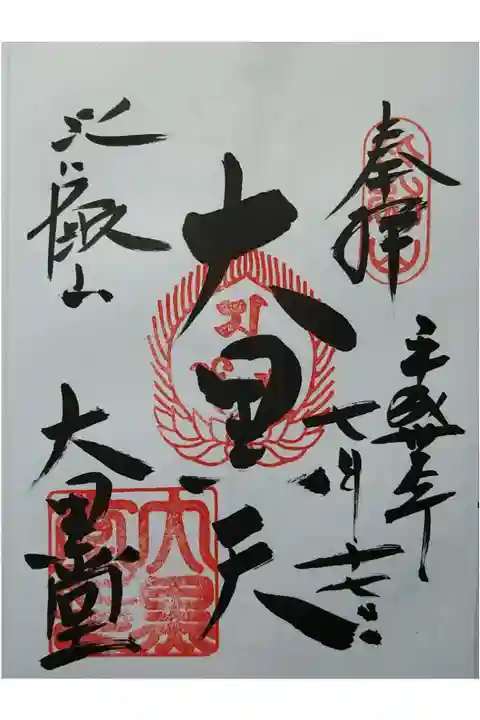 奉拝
平成卅年
七月十七日
大黒天
比叡山
大黒堂